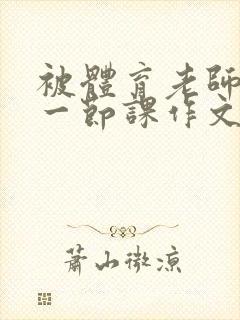 被體育老師
一節課作文
蕭山微涼